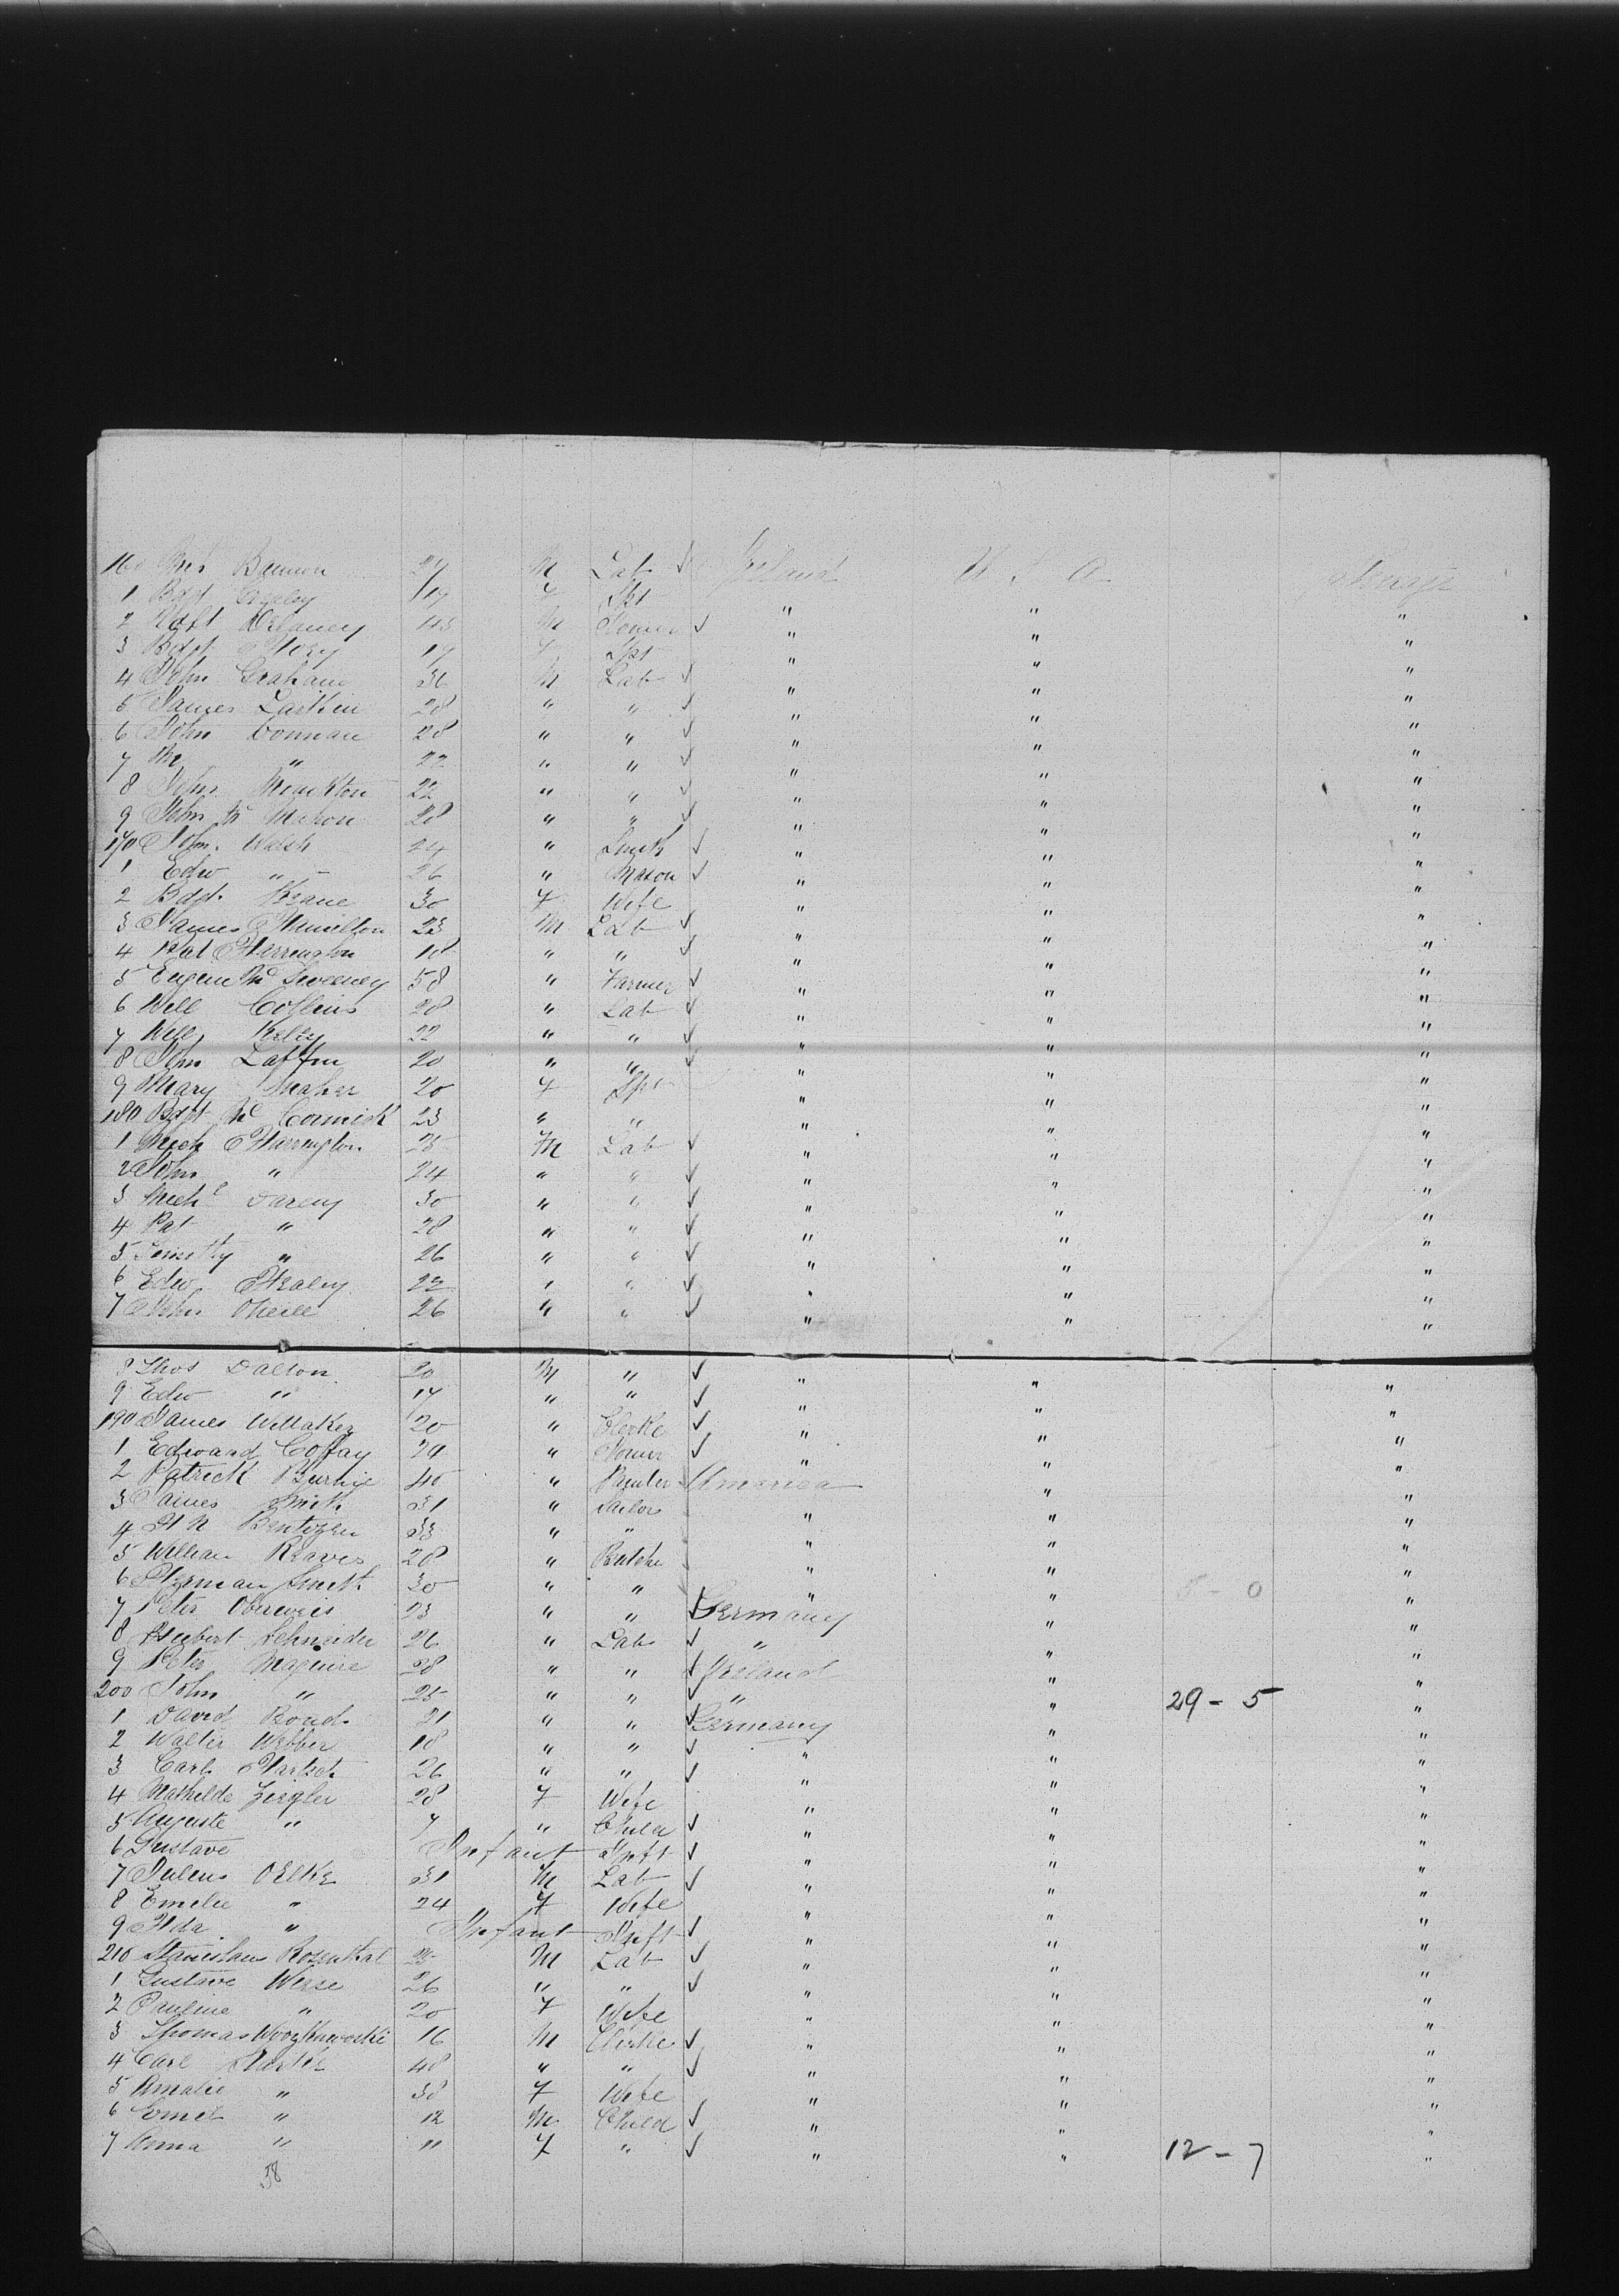 160 Brennan 29 M Lab ✓ Ireland U S A Steerage
1 Bdgt 19 F Spt " " "
2 Delaney 45 M ✓ " " "
3 Bdgt Story 19 F Spt " " "
4 John Graham 36 M Lab ✓ " " "
5 James Larkin 28 " " ✓ " " "
6 John Donnan 28 " " ✓ " " "
7 " 22 " " ✓ " " "
8 John Monckton 22 " " ✓ " " "
9 John Mc Mahon 28 " " ✓ " " "
170 John Walsh 24 " Smith ✓ " " "
1 Edw " 26 " Mason ✓ " " "
2 Bdgt Keane 30 F Wife " " "
3 James Hamilton 23 M Lab ✓ " " "
4 Pat Harrington 18 " " ✓ " " "
5 Eugene Mc Sweeney 58 " Farmer ✓ " " "
6 Will Collins 28 " Lab ✓ " " "
7 Will Kelly 22 " " ✓ " " "
8 John Laffin 20 " " ✓ " " "
9 Mary Meaher 20 F Spt " " "
180 Bdgt Mc Cormick 23 " " " " "
1 Mich Harrington 25 M Lab ✓ " " "
2 John " 24 " " ✓ " " "
3 Michl Darcy 30 " " ✓ " " "
4 Pat " 28 " " ✓ " " "
5 Timothy " 26 " " ✓ " " "
6 Edw Healy 22 " " ✓ " " "
7 John ONeill 26 " " ✓ " " "
8 Thos Dalton 20 M " ✓ " " "
9 Edw " 17 " " ✓ " " "
190 James Wittaker 20 " Clerke ✓ " " "
1 Edward Coffay 24 " ✓ " " "
2 Patrick Burke 40 " Painter America " "
3 James Smith 31 " Sailor " " "
4 H N Bentzen 33 " " " " "
5 William Reaves 28 " Butche " " "
6 Herman Smith 30 " " " " 5 - 0 "
7 Peter Oberweis 23 " " ✓ Germany " "
8 Hubert Schneider 26 " Lab ✓ " " "
9 Peter Maguire 28 " " ✓ Ireland " "
200 John " 25 " " ✓ " " 29 - 5 "
1 David Bond 21 " " ✓ Germany " "
2 Walter Webber 18 " " ✓ " " "
3 Carl 26 " " ✓ " " "
4 Mathilde Ziegler 28 F Wife " " "
5 Auguste " 7 " Child ✓ " " "
6 Gustave Infant Inft ✓ " " "
7 Julius Oelke 31 M Lab ✓ " " "
8 Emelie " 24 F Wife " " "
9 Ida " Infant Inft ✓ " " "
210 Stanislaus Rosenthal 25 M Lab ✓ " " "
1 Gustave Weise 26 " " ✓ " " "
2 Pauline " 20 F Wife " " "
3 Thomas 16 M Clerke ✓ " " "
4 Carl 48 " " ✓ " " "
5 Amalie " 38 F Wife " " "
6 " 12 M Child ✓ " " "
7 Anna " 11 F " ✓ " " 12 - 7 "
58